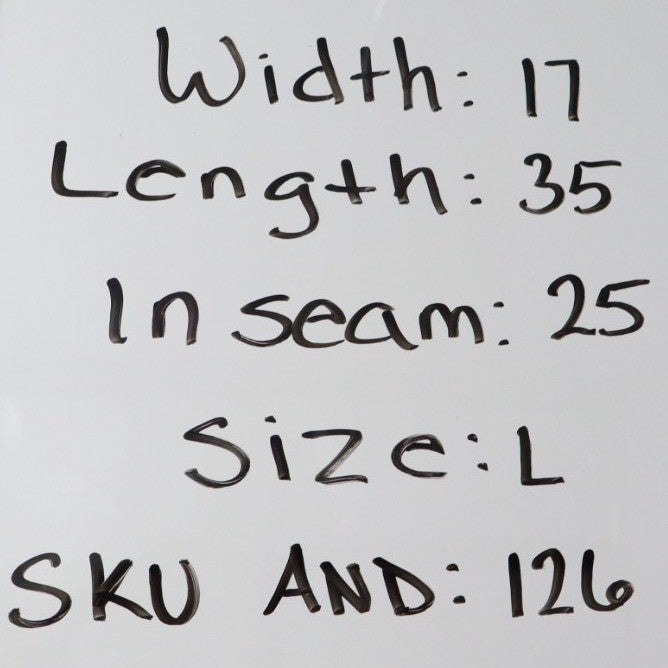 Width: 17
Length: 35
In seam: 25
Size: L
SKU AND: 126